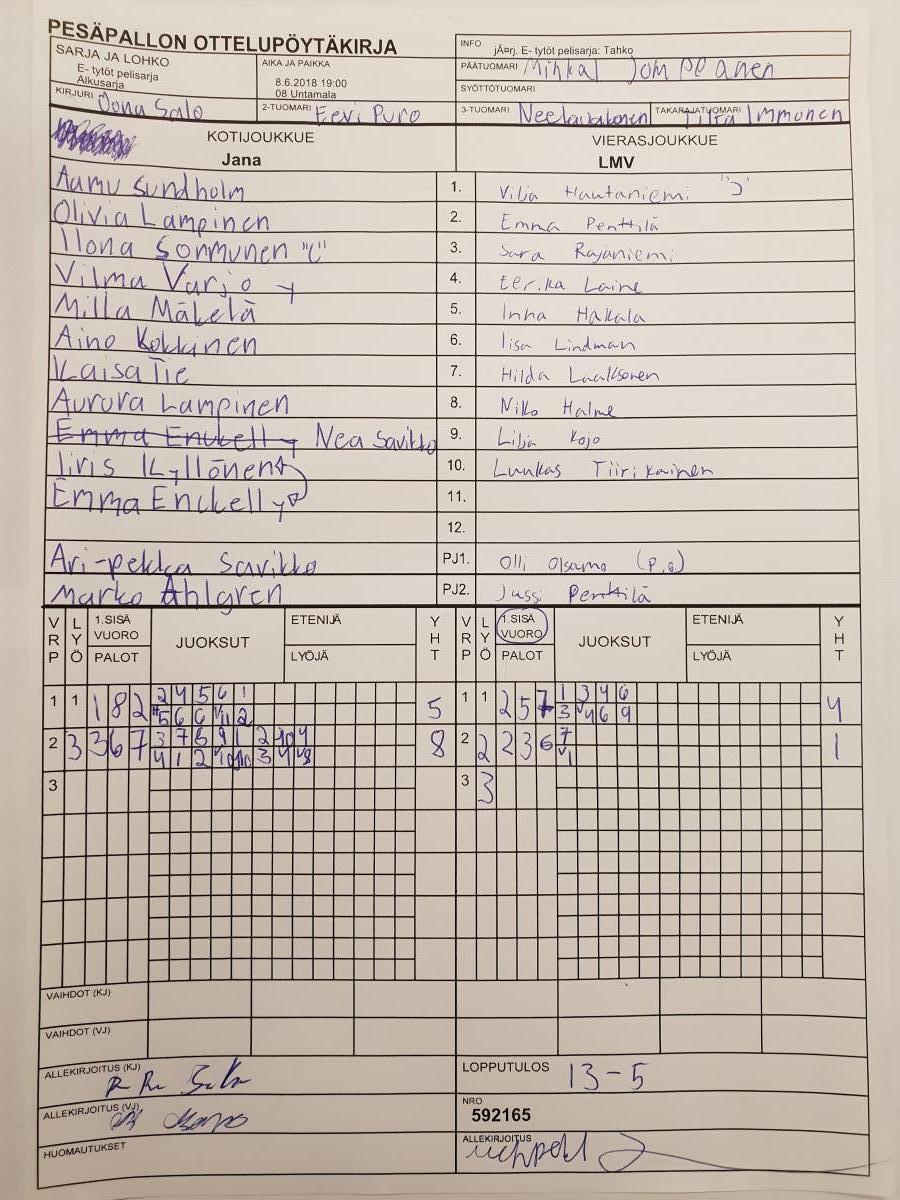 PESÄPALLON OTTELUPÖYTÄKIRJA
SARJA JA LOHKO
E- tytöt pelisarja
Alkusarja
AIKA JA PAIKKA
8.6.2018 19:00
08 Untamala
INFO
jÃ¤rj. E- tytöt pelisarja: Tahko
PÄÄTUOMARI
SYÖTTÖTUOMARI
KIRJURI Oona Salo
2-TUOMARI Eevi Puro
3-TUOMARI
TAKARAJATUOMARI Immonen
KOTIJOUKKUE
Jana
VIERASJOUKKUE
LMV
Aamu Sundholm 1. Vilja Hautaniemi "J"
Olivia Lampinen 2. Emma Penttilä
Ilona Sormunen "C" 3. Sara Rajaniemi
Vilma Varjo y 4. Eerika Laine
Milla Mäkelä 5. Inna Hakala
Aino Kokkinen 6. Iisa Lindman
Kaisa Tie 7. Hilda Laaksonen
Aurora Lampinen 8. Niilo Halme
Emma Enckell y Nea Savikko 9. Lilja Kojo
Iiris Kyllönen 10. Luukas Tiirikainen
Emma Enckell y 11.
12.
Ari-pekka Savikko PJ1. Olli Olsamo
Marko Ahlgren PJ2. Jussi Penttilä
VRP LYÖ 1.SISÄ VUORO PALOT JUOKSUT ETENIJÄ LYÖJÄ YHT
VRP LYÖ 1.SISÄ VUORO PALOT JUOKSUT ETENIJÄ LYÖJÄ YHT
1 1 1 8 2 2 4 5 6 1 5
1 1 2 5 7 1 3 4 6 4
2 3 3 6 7 8
2 2 2 3 6 7 1
3
3 3
VAIHDOT (KJ)
VAIHDOT (VJ)
ALLEKIRJOITUS (KJ)
LOPPUTULOS 13-5
ALLEKIRJOITUS (VJ)
NRO
592165
HUOMAUTUKSET
ALLEKIRJOITUS